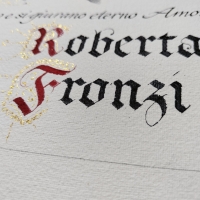 si giurano eterno Amo
Roberta
Fronzi